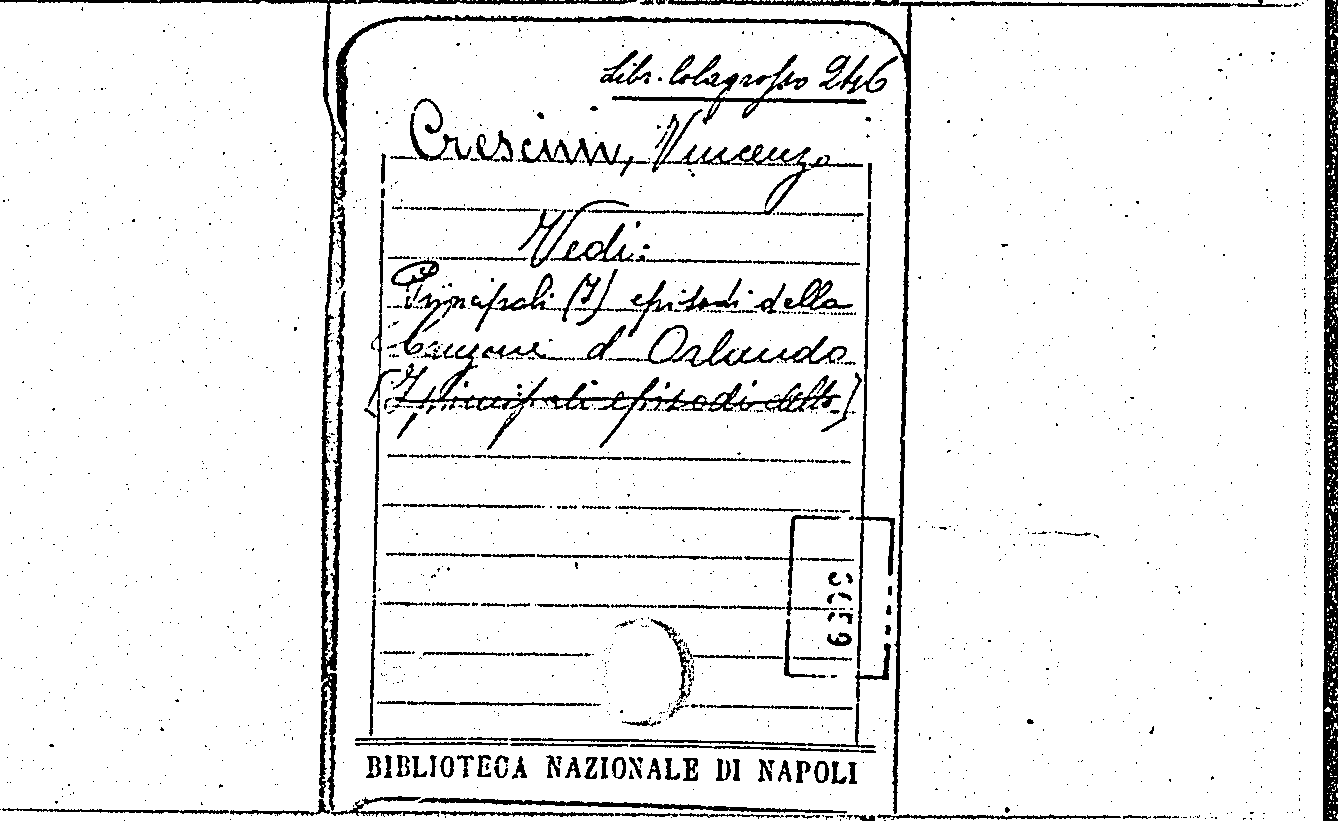 Libr. Colagrosso 246
Crescini, Vincenzo
Vedi:
Principali (I) episodi della
Canzone d'Orlando
[I principali episodi della]
BIBLIOTECA NAZIONALE DI NAPOLI